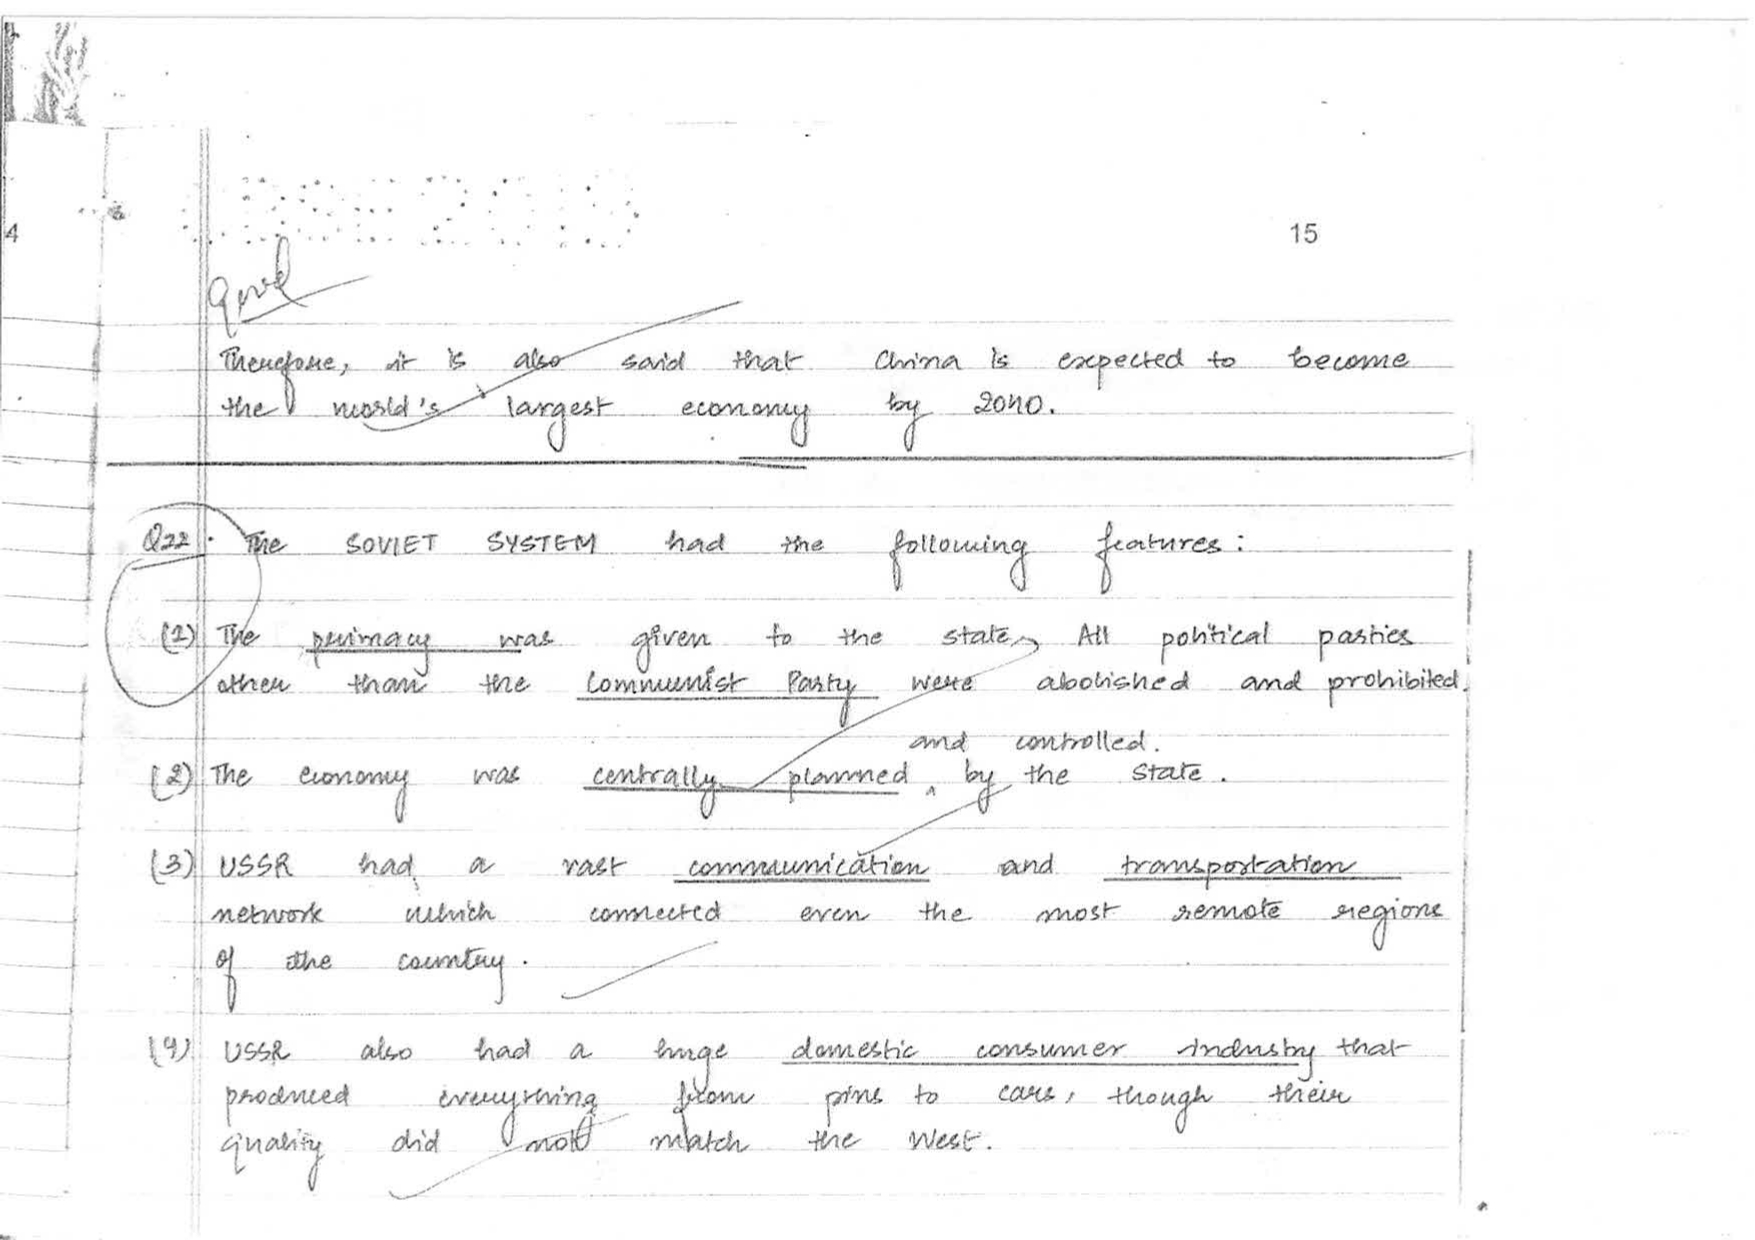 4
15
Good
Therefore, it is also said that China is expected to become
the world's largest economy by 2040.
Q22. The SOVIET SYSTEM had the following features:
(1) The primacy was given to the state, All political parties
other than the Communist Party were abolished and prohibited.
and controlled.
(2) The economy was centrally planned ^ by the state.
(3) USSR had a vast communication and transportation
network which connected even the most remote regions
of the country.
(4) USSR also had a huge domestic consumer industry that
produced everything from pins to cars, though their
quality did not match the West.